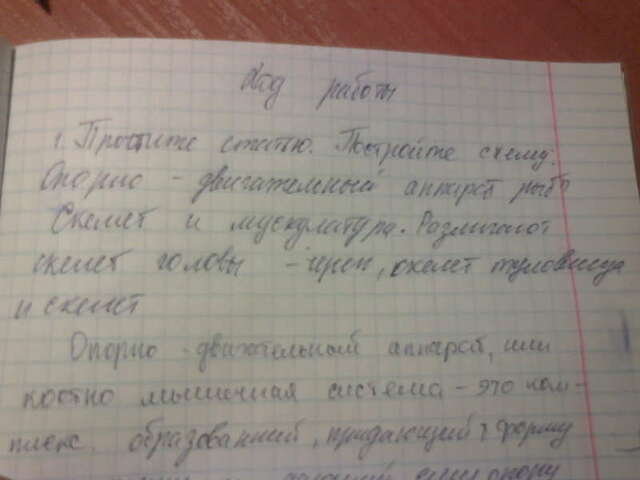 Ход работы
1. Прочтите статью. Постройте схему.
Опорно - двигательный аппарат рыб
Скелет и мускулатура. Различают
скелет головы - череп, скелет туловища
и скелет
Опорно - двигательный аппарат, или
костно мышечная система - это ком-
плекс образований, придающий форму
опору